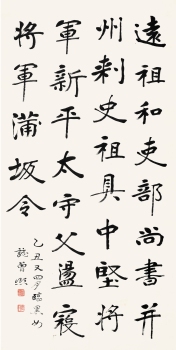 遠祖和吏部尚書并
州刾史祖具中堅將
軍新平太守父盪寇
將軍蒲坂令
乙丑又四月臨黑女
誌曾熙